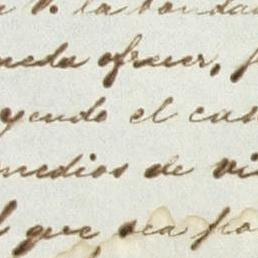 V. la bonda
ueda ofrecer,
yendo el cas
medios de vi
l que sea po